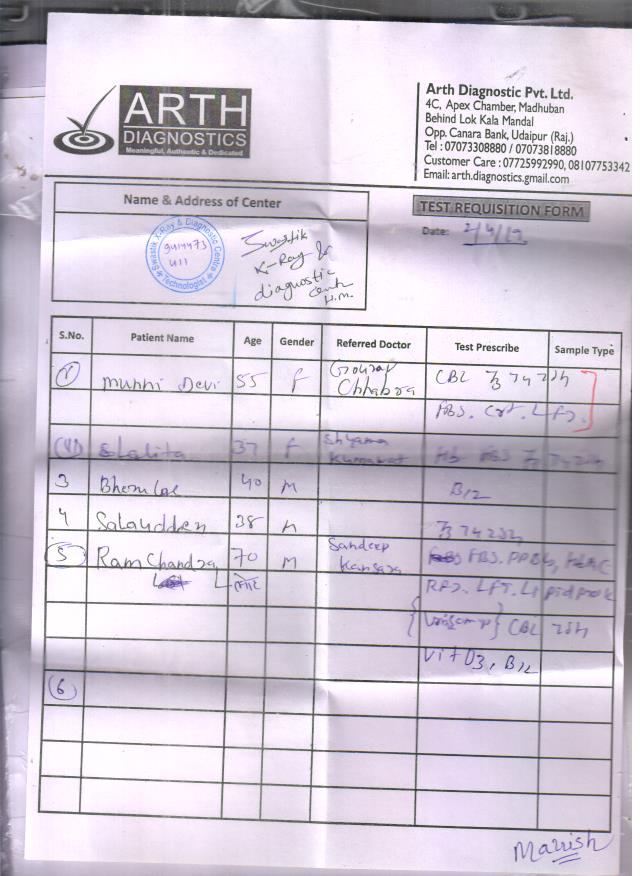 ARTH
DIAGNOSTICS
Meaningful, Authentic & Dedicated
Arth Diagnostic Pvt. Ltd.
4C, Apex Chamber, Madhuban
Behind Lok Kala Mandal
Opp. Canara Bank, Udaipur (Raj.)
Tel : 07073308880 / 07073818880
Customer Care : 07725992990, 08107753342
Email: arth.diagnostics.gmail.com
Name & Address of Center
Swastik X-Ray & Diagnostic Centre
Technologist
Swastik
X-Ray &
diagnostic
Cent
H.M.
TEST REQUISITION FORM
Date:
S.No. Patient Name Age Gender Referred Doctor Test Prescribe Sample Type
1 Munni Devi 55 F Gourav Chhabra CBC T3 T4 TSH
FBS. Crt. LFT.
Lalita 37 F Shyama Kumawat Hb FBS T3 T4 TSH
3 Bherulal 40 M B12
4 Salaudden 38 M T3 T4 TSH
5 Ram Chandra 70 M Sandeep Kansara FBS. PPBS, HbA1C
RFT. LFT. Lipid profile
CBC TSH
Vit D3, B12
6
Manish